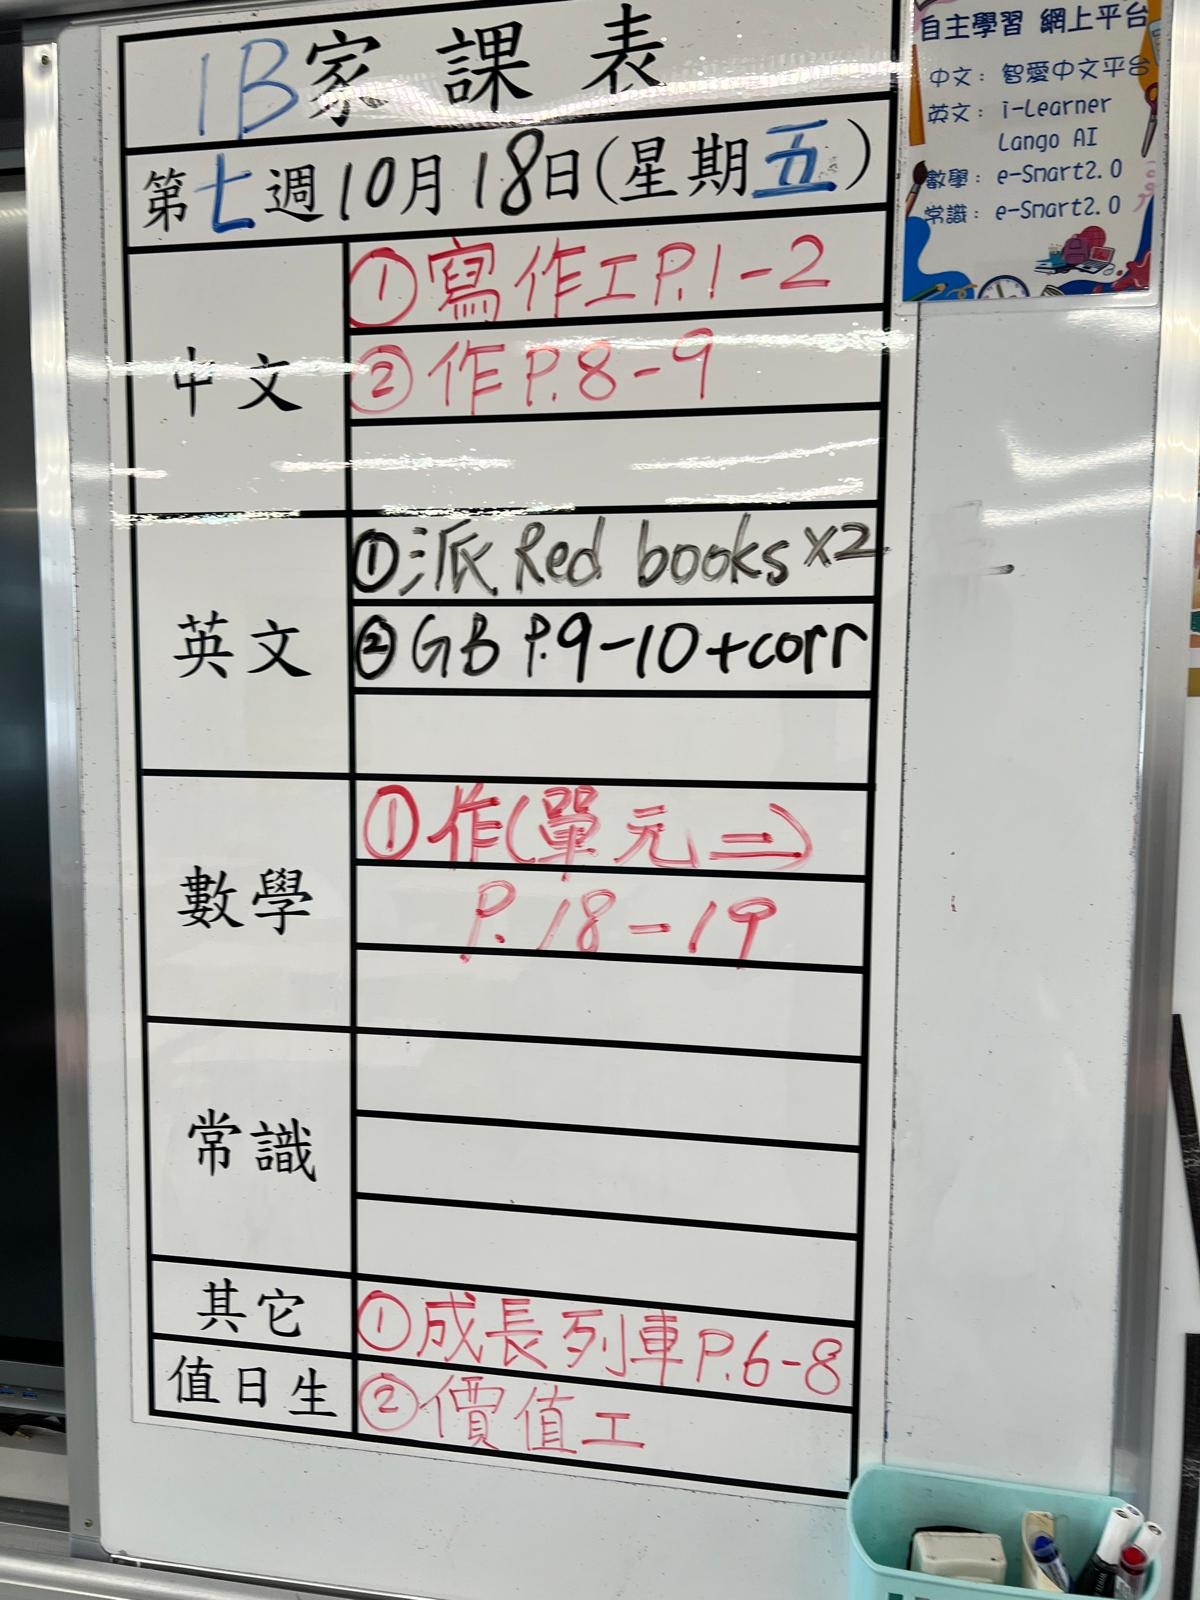 1B家課表
第七週10月18日(星期五)
中文
①寫作工P.1-2
②作P.8-9
英文
①派Red books x2
②GB P.9-10+corr
數學
①作(單元二)
P.18-19
常識
其它
①成長列車P.6-8
值日生
②價值工
自主學習 網上平台
中文：智愛中文平台
英文：i-Learner
Lango AI
數學：e-Smart2.0
常識：e-Smart2.0